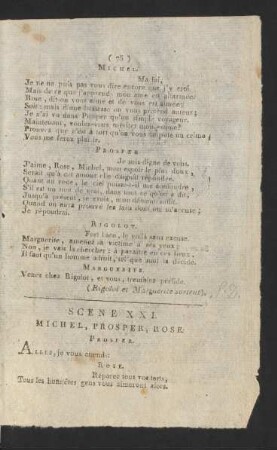 ( 78 )
MICHEL.
Ma foi,
Je ne puis pas vous dire encore que j'y
Mais de ce que j'apprends, mon ame est
Rose, dit-on vous aime et de vous est aimée;
Soit
Je n'ai vu dans Prosper qu'un simple voyageur.
Maintenant, voulez-vous qu'un soldat vous
Prouvez que c'est à tort qu'on vous impute un crime;
Vous me ferez plaisir.
PROSPER.
Je suis digne de vous.
J'aime, Rose, Michel, mon espoir le plus doux,
Serait qu'à cet amour elle daignât répondre.
Quand au reste, le ciel
S'il est un tort de
Jusqu'à présent, je crois,
Quand on aura prouvé les torts dont on m'accuse;
Je répondrai.
RIGOLOT.
Fort bien, le voilà sans excuse.
Marguerite, amenez la victime à ses yeux;
Non, je vais la chercher: à paraître en ces lieux,
Il faut qu'un homme adroit, tel que moi la décide.
MARGUERITE.
Venez cher Rigolot, et vous, tremblez perfide.
( Rigolot et Marguerite sortent).
SCENE XXI.
MICHEL, PROSPER, ROSE.
PROSPER.
ALLEZ, je vous attends.
ROSE.
Réparez tous vos torts,
Tous les honnêtes gens vous aimeront alors.